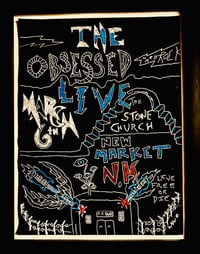 THE
OBSESSED
LIVE
MARCH
6TH
THE
STONE
CHURCH
NEW
MARKET
N.H.
LIVE
FREE
OR
DIE